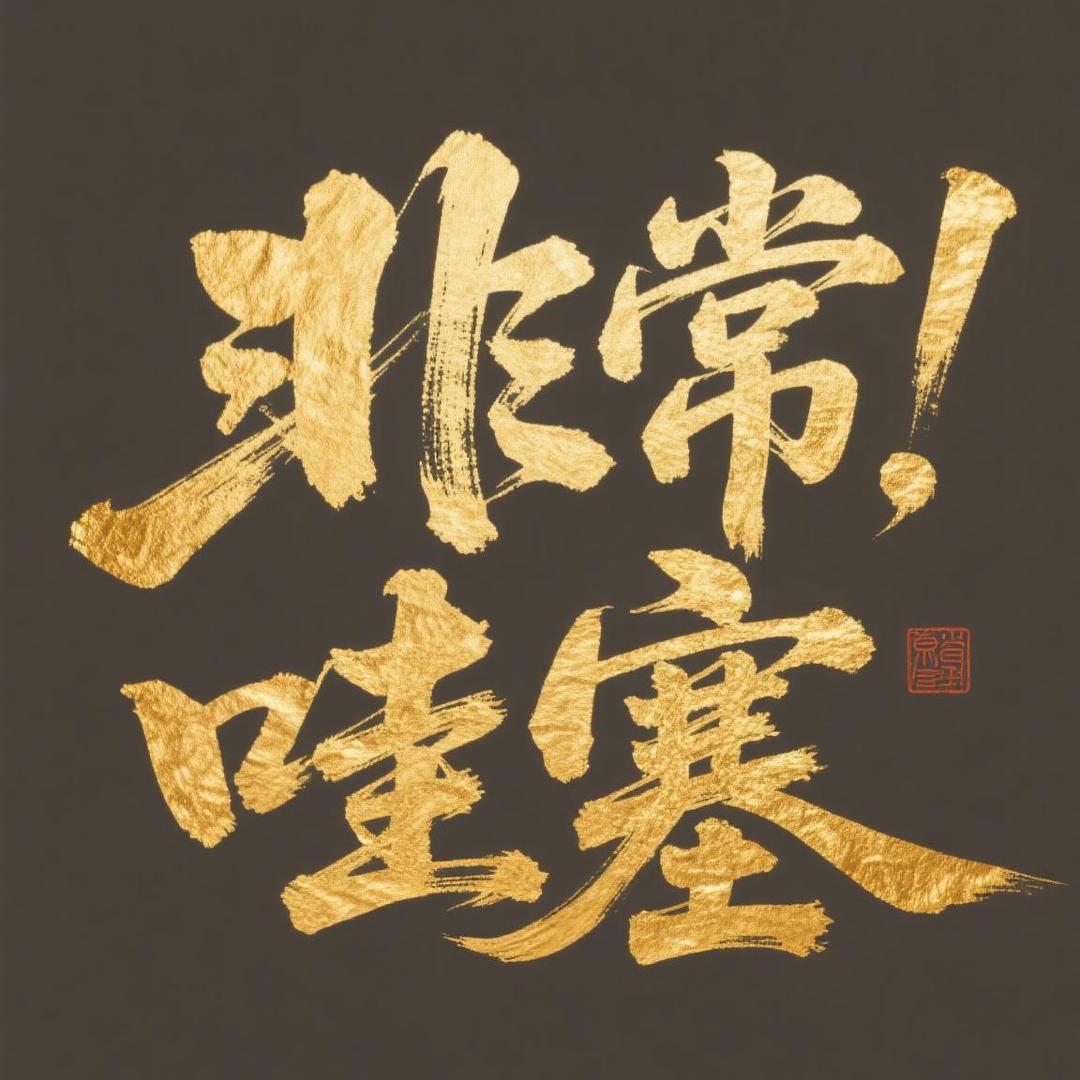 非常!
哇塞